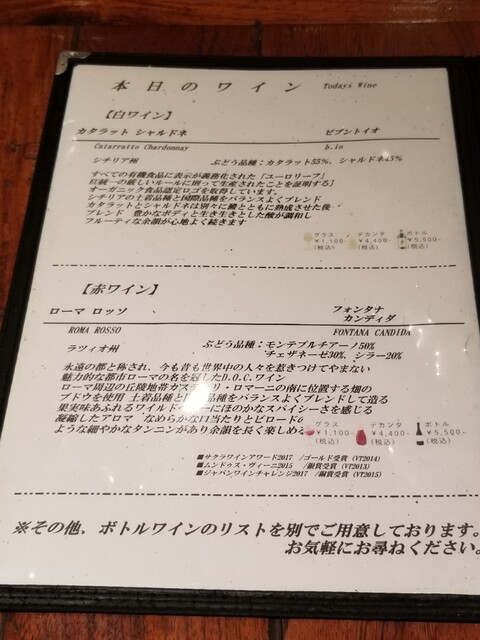 本日のワイン Todays Wine
【白ワイン】
カタラット シャルドネ ビプントイオ
Catarratto Chardonnay b.io
シチリア州 ぶどう品種：カタラット55%、シャルドネ45%
すべての有機食品に表示が義務化された「ユーロリーフ」
EU統一の厳しいルールに則って生産されたことを証明する
オーガニック食品認定ロゴを取得しています。
シチリアの土着品種と国際品種をバランスよくブレンド
カタラットとシャルドネは別々に澱とともに熟成させた後
ブレンド 豊かなボディと生き生きとした酸が調和し
フルーティな余韻が心地よく続きます
グラス デカンタ ボトル
¥1,100- ¥4,400- ¥5,500-
(税込) (税込) (税込)
【赤ワイン】
ローマ ロッソ フォンタナ
カンディダ
ROMA ROSSO FONTANA CANDIDA
ラツィオ州 ぶどう品種：モンテプルチアーノ50%
チェザネーゼ30%、シラー20%
永遠の都と称され、今も昔も世界中の人々を惹きつけてやまない
魅力的な都市ローマの名を冠したD.O.C.ワイン
ローマ周辺の丘陵地帯カステッリ・ロマーニの南に位置する畑の
ブドウを使用 土着品種と
品種をバランスよくブレンドして造る
果実味あふれるワイルド
ーにほのかなスパイシーさを感じる
凝縮したアロマ なめらかな口当たりとビロードの
ような細やかなタンニンがあり余韻を長く楽しめる
グラス デカンタ ボトル
¥1,100- ¥4,400- ¥5,500-
(税込) (税込) (税込)
■サクラワインアワード2017 /ゴールド受賞 (VT2014)
■ムンドゥス・ヴィーニ2015 /銀賞受賞 (VT2013)
■ジャパンワインチャレンジ2017 /銅賞受賞 (VT2015)
※その他、ボトルワインのリストを別でご用意しております。
お気軽にお尋ねください。